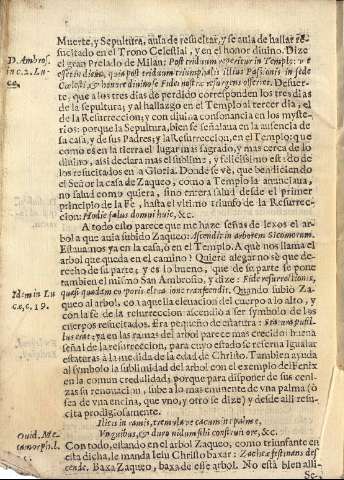 Muerte, y Sepultura, auia de resucitar, y se auia de hallar re-
sucitado en el Trono Celestial, y en el honor diuino. Dize
D. Ambros. in c. 2. Lu-
cæ.
el gran Prelado de Milan: Post triduum reperitur in Templo: vt
esset indicio, quia post triduum triumphalis illius Passionis in sede
Cœlesti, & honore diuino se Fidei nostræ resurgens offerret. De suer-
te, que a los tres dias de perdido corresponden los tres dias
de la sepultura; y al hallazgo en el Templo al tercer dia, el
de la Resurreccion; y con diuina consonancia en los myste-
rios: porque la Sepultura, bien se señalaua en la ausencia de
su casa, y de sus Padres; y la Resurreccion, en el Templo: que
como es en la tierra el lugar mas sagrado, y mas cerca de lo
diuino, assi declara mas el sublime, y felicissimo estado de
los resucitados en la Gloria. Donde se vè, que bendiciendo
el Señor la casa de Zaqueo, como a Templo la anunciaua,
no salud como quiera, sino entera salud desde el primer
principio de la Fè, hasta el vltimo triunfo de la Resurrec-
cion: Hodie salus domui huic, &c.
A todo esto parece que me haze señas de lexos el ar-
bol a que auia subido Zaqueo: Ascendit in arborem Sicomorum.
Estauamos ya en la casa, ò en el Templo. A què nos llama el
arbol que queda en el camino? Quiere alegarnos è que de-
recho de su parte; y es lo bueno, que de su parte se pone
tambien el mismo San Ambrosio, y dize: Fide resurrectionis,
Idem in Lu
cæ, c. 19.
quasi quadam corporis elatione transcendit. Quando subiò Za-
queo al arbol, con aquella eleuacion del cuerpo a lo alto, y
con la fè de la resurreccion ascendiò a ser symbolo de los
cuerpos resucitados. Era pequeño de estatura: Statura pusil-
lus erat: ya en las ramas del arbol parece mas crecido: buena
señal de la resurreccion, para cuyo estado se reserua igualar
estaturas a la medida de la edad de Christo. Tambien ayuda
al symbolo la sublimidad del arbol con el exemplo del Fenix
en la comun credulidad; porque para disponer de sus ceni-
zas su renouacion, sube a lo mas eminente de vna palma (ò
sea de vna encina, que vno, y otro se dize) y desde alli resu-
cita prodigiosamente.
Ilicis in ramis, tremulæve cacumine palmæ,
Ouid. Me
tamorph. l.
Vnguibus, & duro nidum sibi construit ore, &c.
Con todo, estando en el arbol Zaqueo, como triunfante en
esta dicha, le manda Iesu Christo baxar: Zachæe festinans des
cende. Baxa Zaqueo, baxa de esse arbol. No està bien alli
Se-